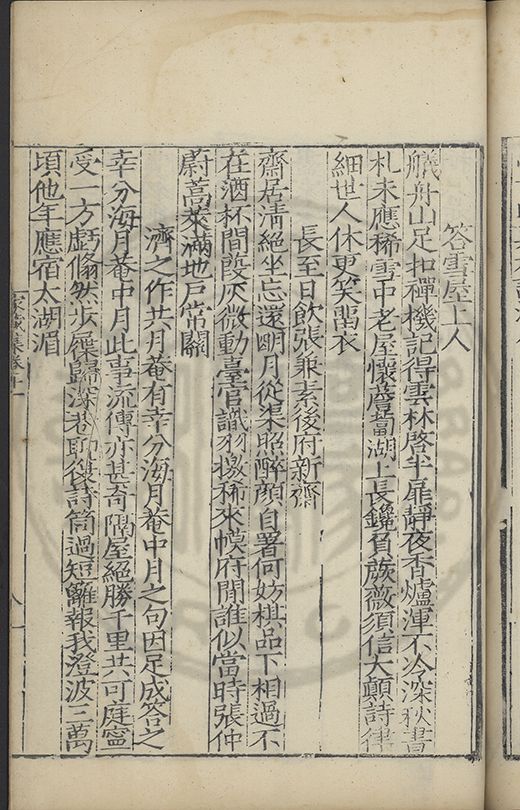 答雪屋上人
艤舟山足扣禪機記得雲林啓半扉靜夜香爐渾不冷深秋書
札未應稀雪中老屋懷蓍蔔湖上長鑱負蕨薇須信大顛詩律
細世人休更笑留衣
長至日飲張兼素後府新齋
齋居清絕坐忘還明月從渠照醉顏自署何妨棋品下相過不
在酒杯間葭灰微動臺官識羽檄稀來幙府閒誰似當時張仲
蔚蒿萊滿地戶常關
濟之作共月菴有幸分海月菴中月之句因足成答之
幸分海月菴中月此事流傳亦甚奇隅屋絕勝千里共可庭寧
受一方虧翛然步屧歸深巷聊復詩筒過短籬報我澄波三萬
頃他年應宿太湖湄
家藏集卷十